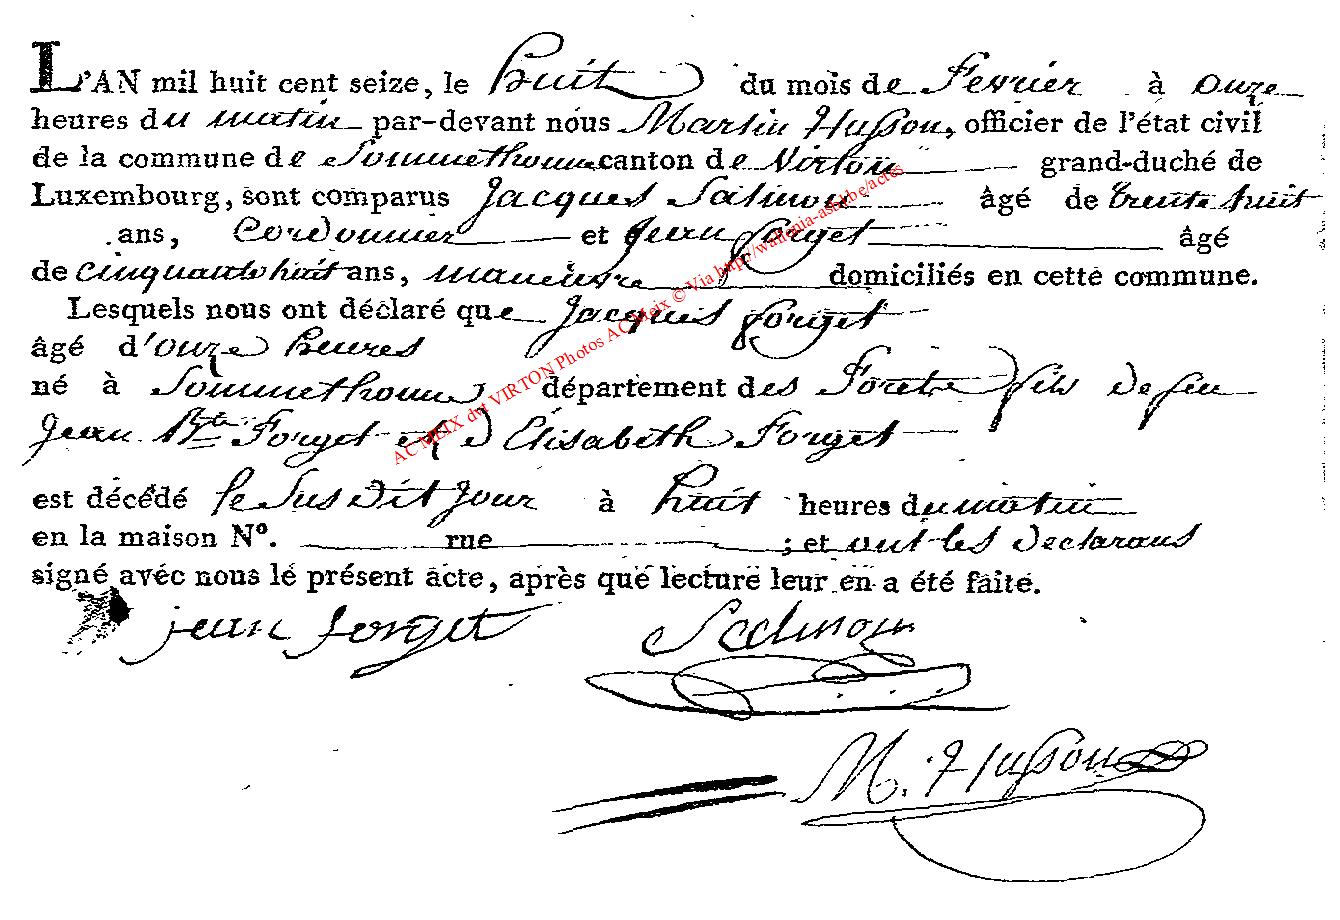 L'AN mil huit cent seize, le huit du mois de Fevrier à onze
heures du matin par-devant nous Martin Husson, officier de l'état civil
de la commune de Sommethonne canton de Virton grand-duché de
Luxembourg, sont comparus Jacques âgé de trente huit
ans, Cordonnier et Jean Forget âgé
de cinquante huit ans, maneuvre domiciliés en cette commune.
Lesquels nous ont déclaré que Jacques Forget
âgé d'onze heures
né à Sommethonne département des Forets fils de feu
Jean Bte Forget et d'Elisabeth Forget
est décédé le susdit jour à huit heures du matin
en la maison N°. rue ; et ont les declarans
signé avec nous le présent acte, après que lecture leur en a été faite.
jean forget
M. Husson
AC MEIX dvt VIRTON Photos AC Meix © Via http://wallonia-asbl.be/actes